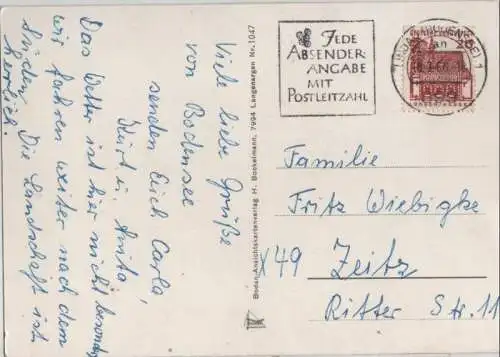 Viele liebe Grüße
von Bodensee
senden Euch Carla,
Kurt u. Anita
Das Wetter ist hier nicht besonders
wir fahren weiter nach dem
Süden. Die Landschaft ist
herrlich.
Boden-Ansichtskartenverlag H. Bockelmann, 7994 Langenargen Nr. 1047
JEDE
ABSENDER-
ANGABE
MIT
POSTLEITZAHL
LINDAU
Familie
Fritz Wiebigke
X49 Zeitz
Ritter Str. 11